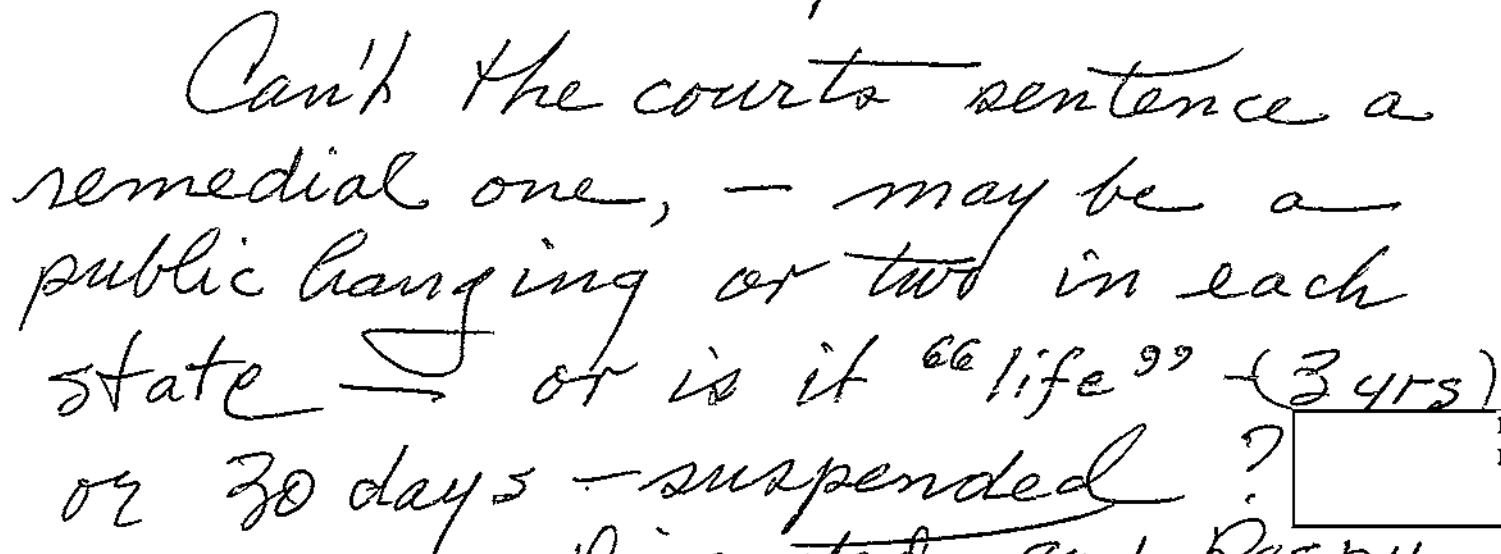 Can't the courts sentence a
remedial one, — may be a
public hanging or two in each
state — or is it "life" - (3 yrs)
or 30 days - suspended ?
and